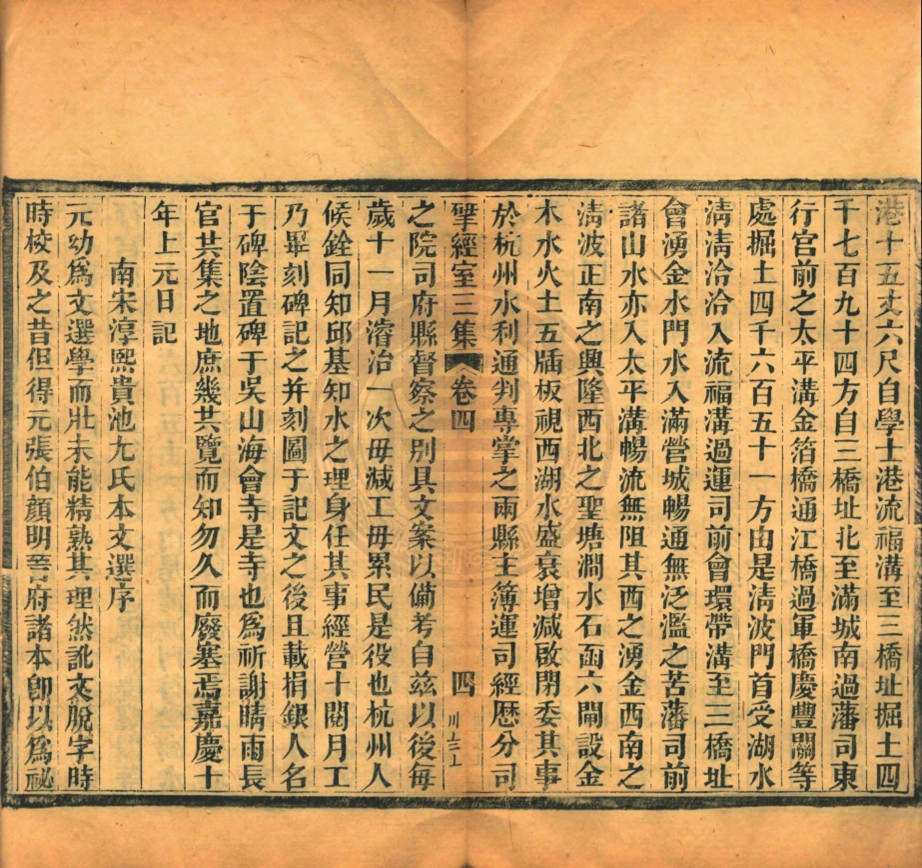 港十五丈六尺自學士港流福溝至三橋址掘土四
千七百九十四方自三橋址北至滿城南過藩司東
行宮前之太平溝金箔橋通江橋過軍橋慶豐關等
處掘土四千六百五十一方由是淸波門首受湖水
淸淸洽洽入流福溝過運司前會環帶溝至三橋址
會湧金水門水入滿營城暢通無泛濫之苦藩司前
諸山水亦入太平溝暢流無阻其西之湧金西南之
淸波正南之興隆西北之聖塘澗水石函六閘設金
木水火土五牐板視西湖水盛衰增減啟閉委其事
於杭州水利通判專掌之兩縣主簿運司經歷分司
揅經室三集 卷四 四
之院司府縣督察之别具文案以備考自茲以後每
歲十一月濬治一次毋減工毋累民是役也杭州人
候銓同知邱基知水之理身任其事經營十閱月工
乃畢刻碑記之并刻圖于記文之後且載捐銀人名
于碑陰置碑于吳山海會寺是寺也爲祈謝晴雨長
官共集之地庶幾共覽而知勿久而廢塞焉嘉慶十
年上元日記
南宋淳熙貴池尤氏本文選序
元幼爲文選學而壯未能精熟其理然訛文脫字時
時校及之昔但得元張伯顏明晉府諸本卽以爲祕